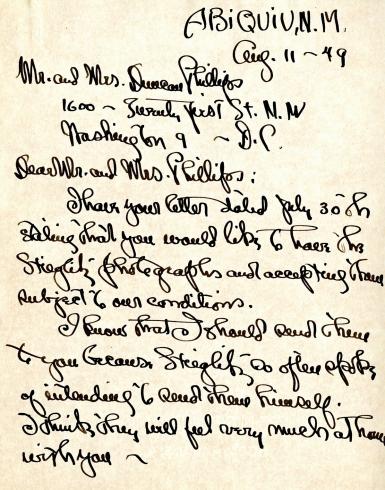 ABIQUIU, N.M.
Aug. 11 ~ 49
Mr. and Mrs. Duncan Phillips
1600 ~ Twenty first St. N.W
Washington 9 ~ D.C.
Dear Mr. and Mrs. Phillips:
I have your letter dated July 30th
stating that you would like to have the
Stieglitz photographs and accepting them
subject to our conditions.
I know that I should send them
to you because Stieglitz so often spoke
of intending to send them himself.
I think they will feel very much at home
with you ~